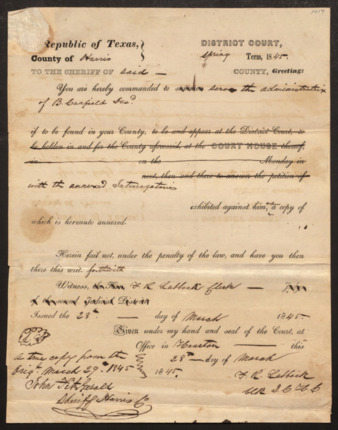 Republic of Texas,
County of Harris
DISTRICT COURT,
Spring Term, 1845.
TO THE SHERIFF OF said COUNTY, Greeting:
You are hereby commanded to serve the administratrix
of B. Decd
if to be found in your County, to be and appear at the District Court, to
be holden in and for the County aforesaid, at the COURT HOUSE thereof,
in the Monday in
next, then and there to answer the petition of
with the annexed Interrogatories
exhibited against him, a copy of
which is hereunto annexed.
Herein fail not, under the penalty of the law, and have you then
there this writ.
Witness, F R Lubbock Clerk
Issued the 28th day of March 1845.
Given under my hand and seal of the Court, at
Office in Houston this
28th day of March
1845.
F. R. Lubbock
Clk D. C. H. C
a true copy from the
Orig. March 29th 1845
John Fitzgerald
Sheriff Harris Co